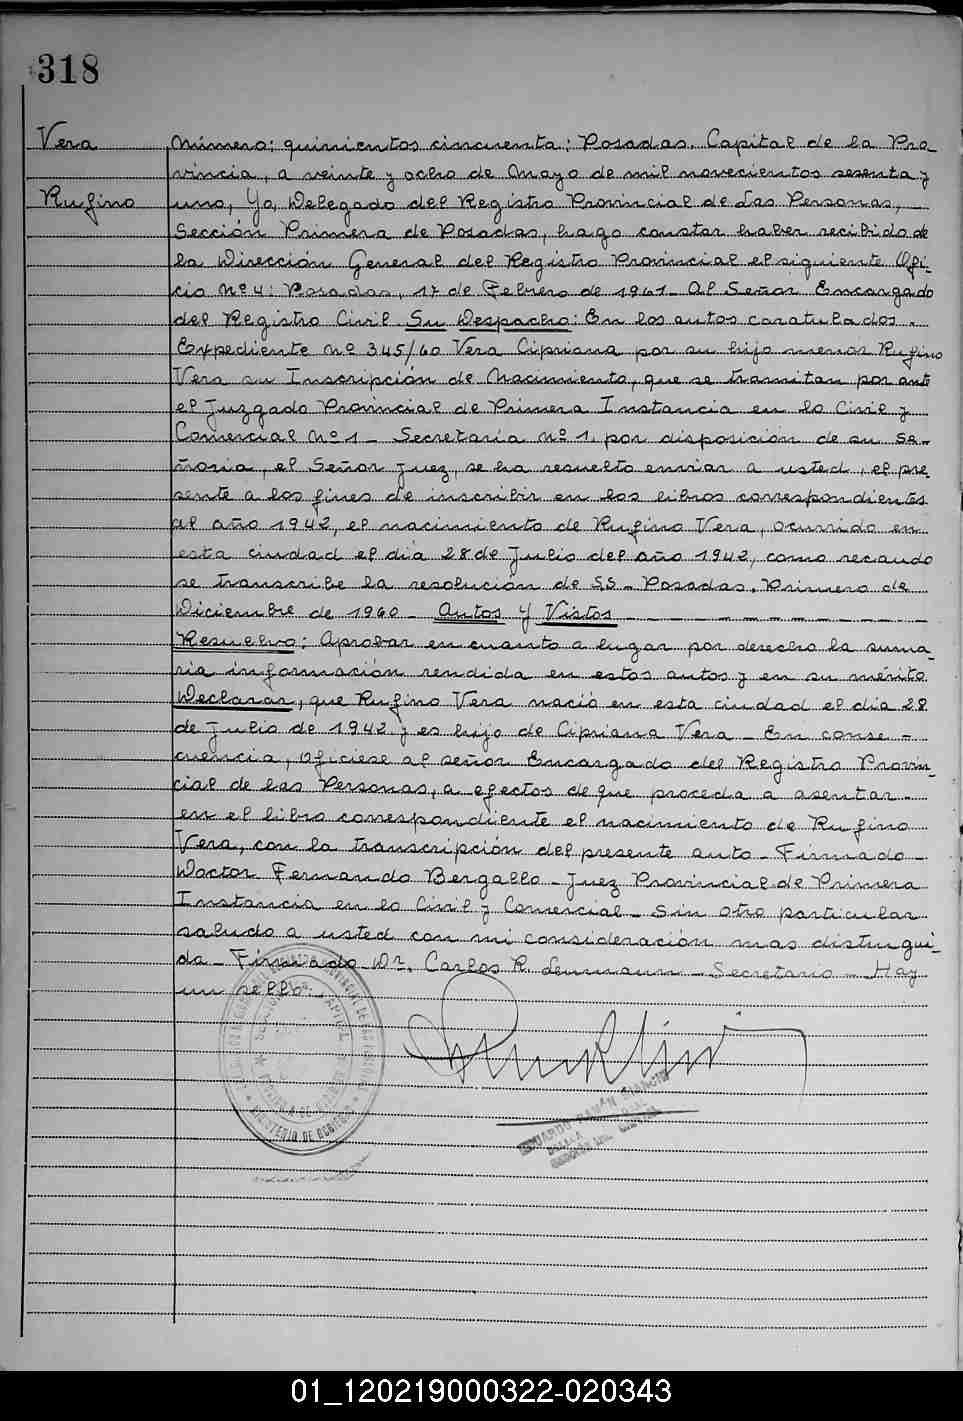 318
Vera
Rufino
Número: quinientos cincuenta: Posadas. Capital de la Pro-
vincia, a veinte y ocho de Mayo de mil novecientos sesenta y
uno, Yo, Delegado del Registro Provincial de Las Personas,
Sección Primera de Posadas, hago constar haber recibido de
la Dirección General del Registro Provincial el siguiente Ofi-
cio Nº 4: Posadas, 17 de Febrero de 1961- Al Señor Encargado
del Registro Civil. Su Despacho: En los autos caratulados.
Expediente nº 345/60 Vera Cipriana por su hijo menor Rufino
Vera su Inscripción de Nacimiento, que se tramitan por ante
el Juzgado Provincial de Primera Instancia en lo Civil y
Comercial Nº 1 - Secretaría nº 1. por disposición de su Se-
ñoria, el Señor Juez, se ha resuelto enviar a usted, el pre
sente a los fines de inscribir en los libros correspondientes
al año 1942, el nacimiento de Rufino Vera, ocurrido en
esta ciudad el día 28 de Julio del año 1942, como recaudo
se transcribe la resolución de SS - Posadas, Primero de
Diciembre de 1960 - Autos y Vistos
Resuelvo: Aprobar en cuanto a lugar por derecho la suma-
ria información rendida en estos autos y en su mérito
Declarar, que Rufino Vera nació en esta ciudad el día 28
de Julio de 1942 y es hijo de Cipriana Vera - En conse-
cuencia, Ofíciese al señor Encargado del Registro Provin-
cial de las Personas, a efectos de que proceda a asentar-
en el libro correspondiente el nacimiento de Rufino
Vera, con la transcripción del presente auto - Firmado -
Doctor Fernando Bergallo - Juez Provincial de Primera
Instancia en lo Civil y Comercial - Sin otro particular
saludo a usted con mi consideración mas distingui-
da - Firmado - Dr. Carlos R. Lenmann - Secretario - Hay
un sello.
MINISTERIO DE GOBIERNO
EDUARDO RAMÓN
01_120219000322-020343